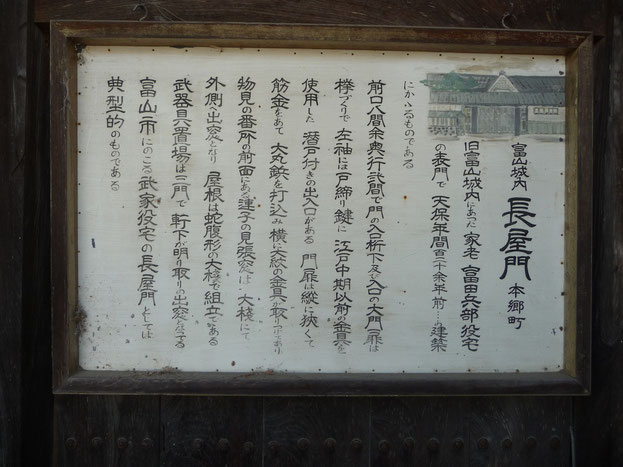 富山城内 長屋門 本郷町
旧富山城内にあった 家老 富田兵部役宅
の表門で 天保年間 百三十余年前 建築
にかゝるものである
前口八間余奥行弐間で門の入口桁下及び入口の大門扉は
欅づくりで 左袖には戸締り鍵に 江戸中期以前の金具を
使用した 潜戸付きの出入口がある 門扉は縦に狭くて
筋金をあて 大丸鋲を打込み 横に 金具が取りつけてあり
物見の番所の前面にある連子の見張窓は 大棧にて
外側へ出窓となり 屋根は蛇腹形の大棧で組立てある
武器具置場は三門で 軒下が明り取りの出窓となってする
富山市にのこる武家役宅の長屋門としては
典型的のものである